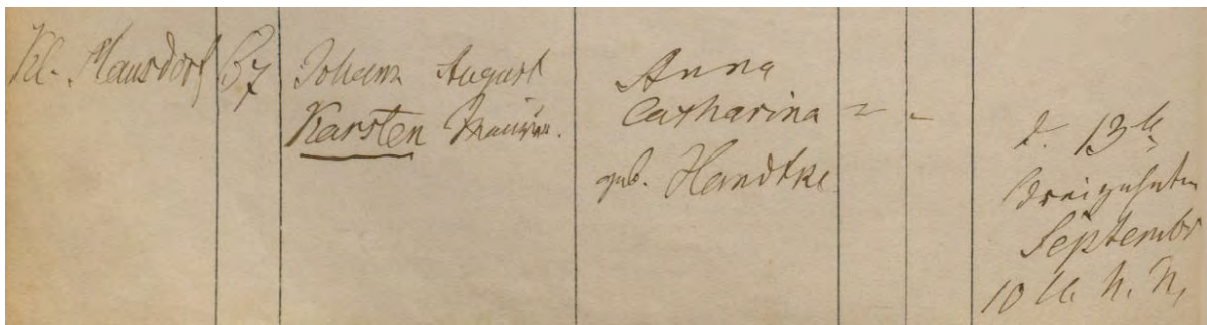 Kl. Mausdorf
57
Johann August
Karsten Maurer.
Anna
Catharina
geb. Handtke
= -
d. 13te
Dreizehnten
Septembr
10 U. N. M.